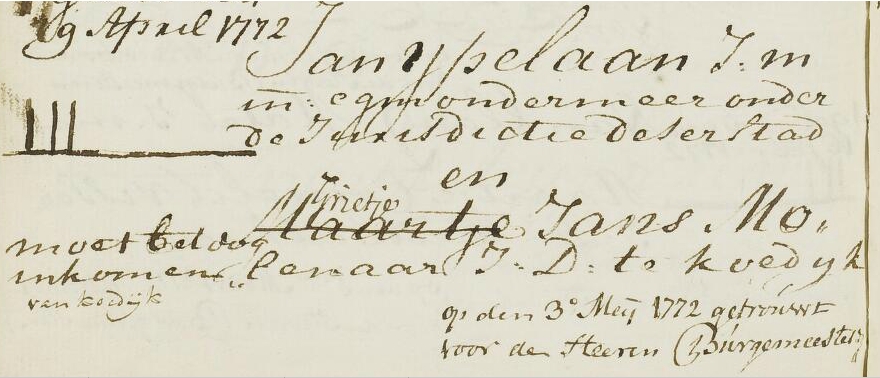 19 April 1772
Jan ypelaan J: m
in: egmondermeer onder
de Jurisdictie deser stad
III
en
Grietje
Maartje Jans Mo„
„lenaar J: D: te koedyk
moet betoog
inkomen
van koedijk
op den 3º Meij 1772 getrouwt
voor de Heeren Burgemeesters